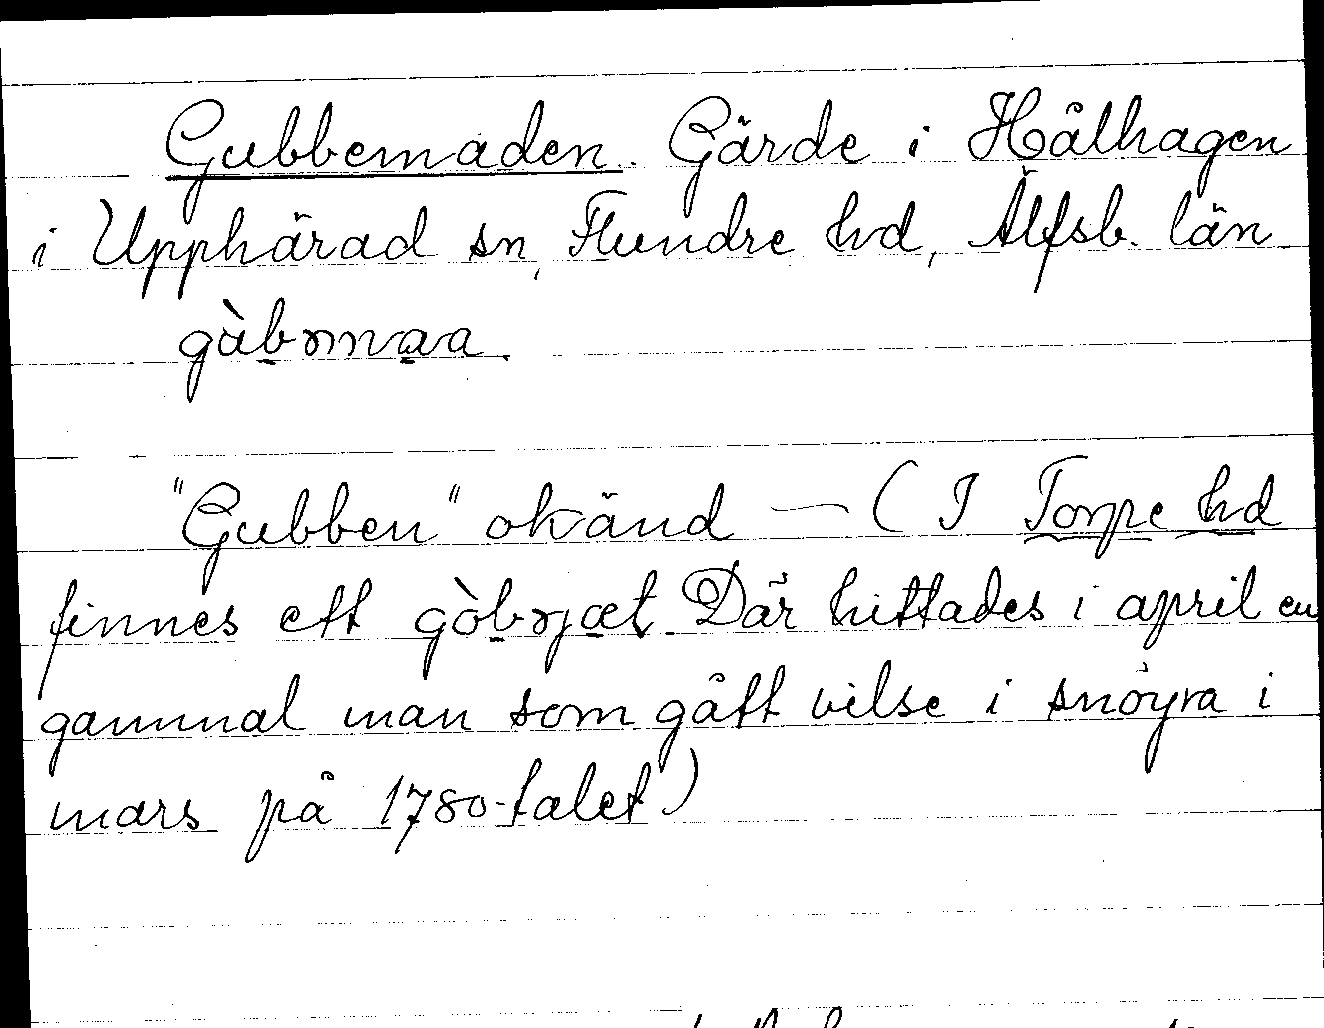 Gubbemaden. Gärde i Hålhagen
i Upphärad sn, Flundre hd, Älfsb. län
"Gubben" okänd — (I Torpe hd
finnes ett Där hittades i april en
gammal man som gått vilse i snöyra i
mars på 1780-talet)